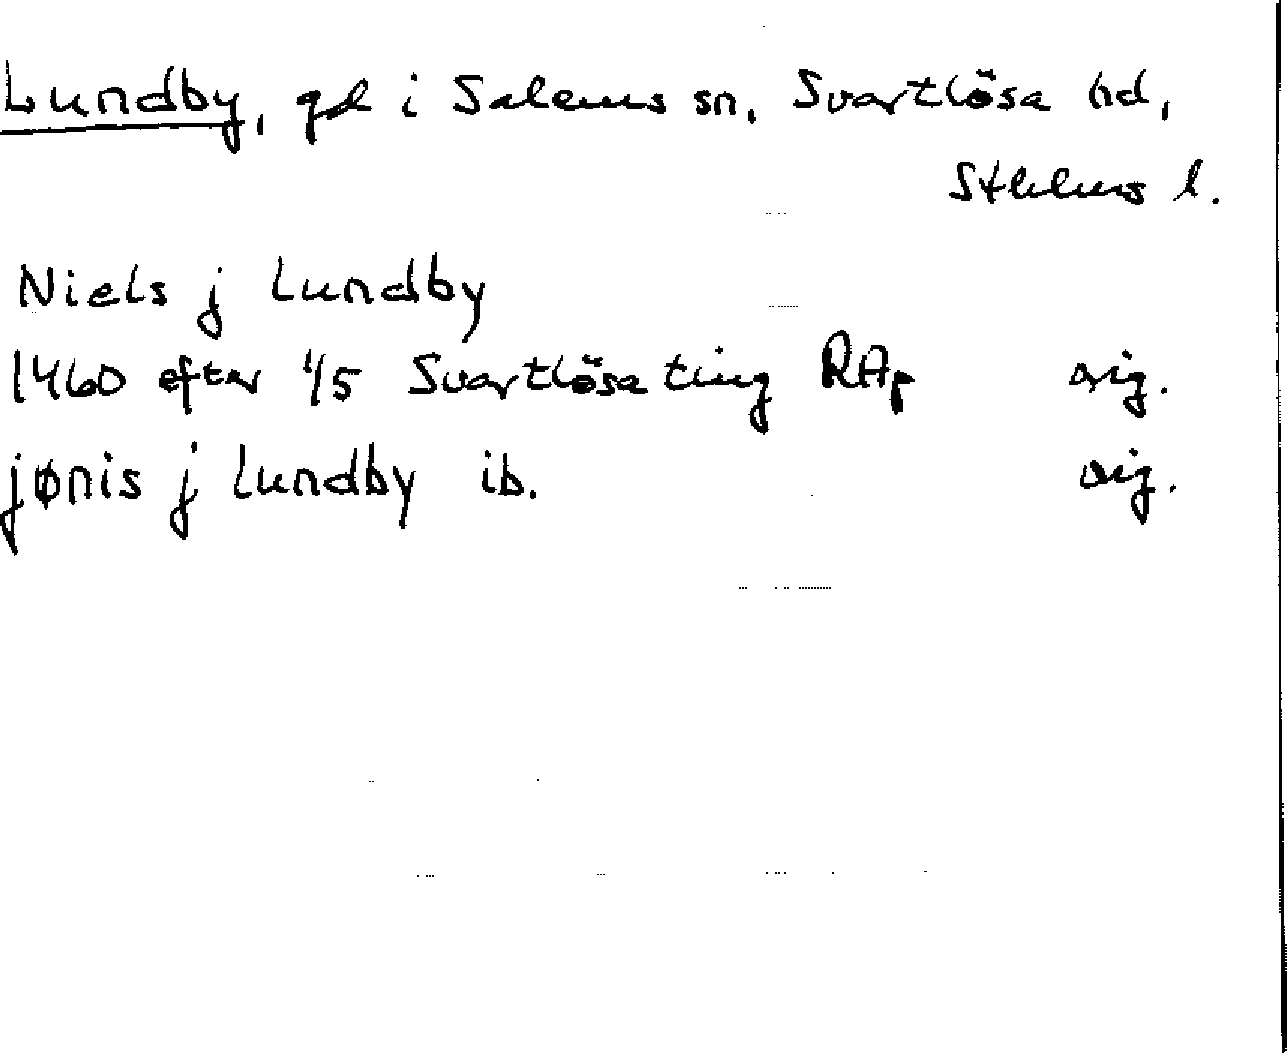 Lundby, gd i Salems sn, Svartlösa hd,
Sthlms l.
Niels j Lundby
1460 efter 1/5 Svartlösa ting RAp orig.
jønis j Lundby ib. orig.